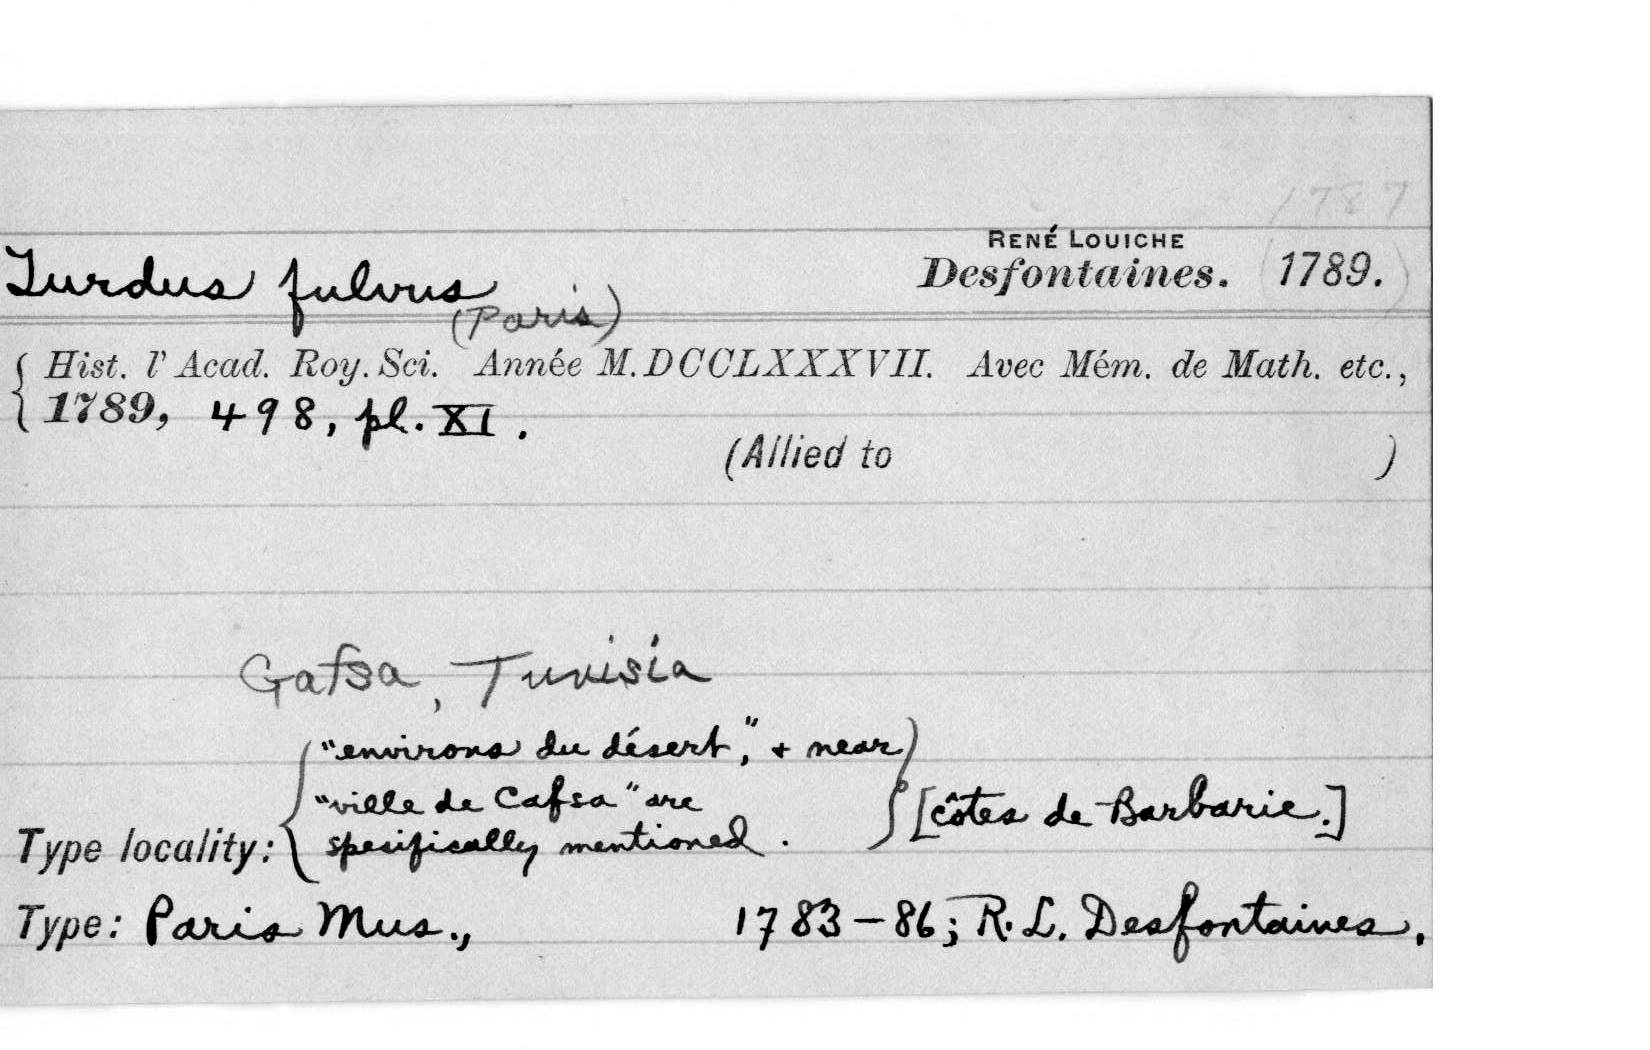 1787
RENÉ LOUICHE
Turdus fulvus Desfontaines. (1789.)
(Paris)
Hist. l' Acad. Roy. Sci. Année M.DCCLXXXVII. Avec Mém. de Math. etc.,
1789, 498, pl. XI.
(Allied to )
Gafsa, Tunisia
"environs du désert," + near
"ville de Cafsa" are [côtes de Barbarie.]
Type locality: spesifically mentioned.
Type: Paris Mus., 1783-86; R. L. Desfontaines.